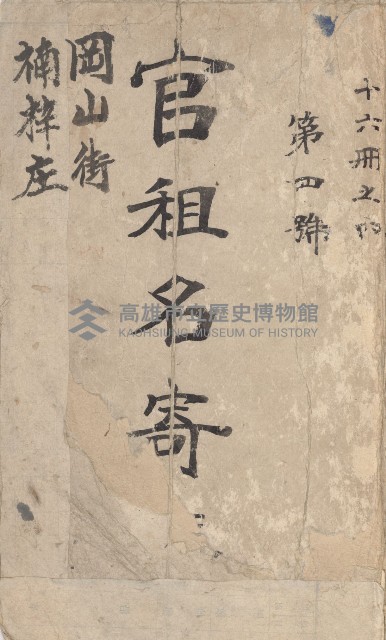 十六冊之内
第四號
官租名寄
岡山街
楠梓庄
高雄市立歷史博物館
KAOHSIUNG MUSEUM OF HISTORY